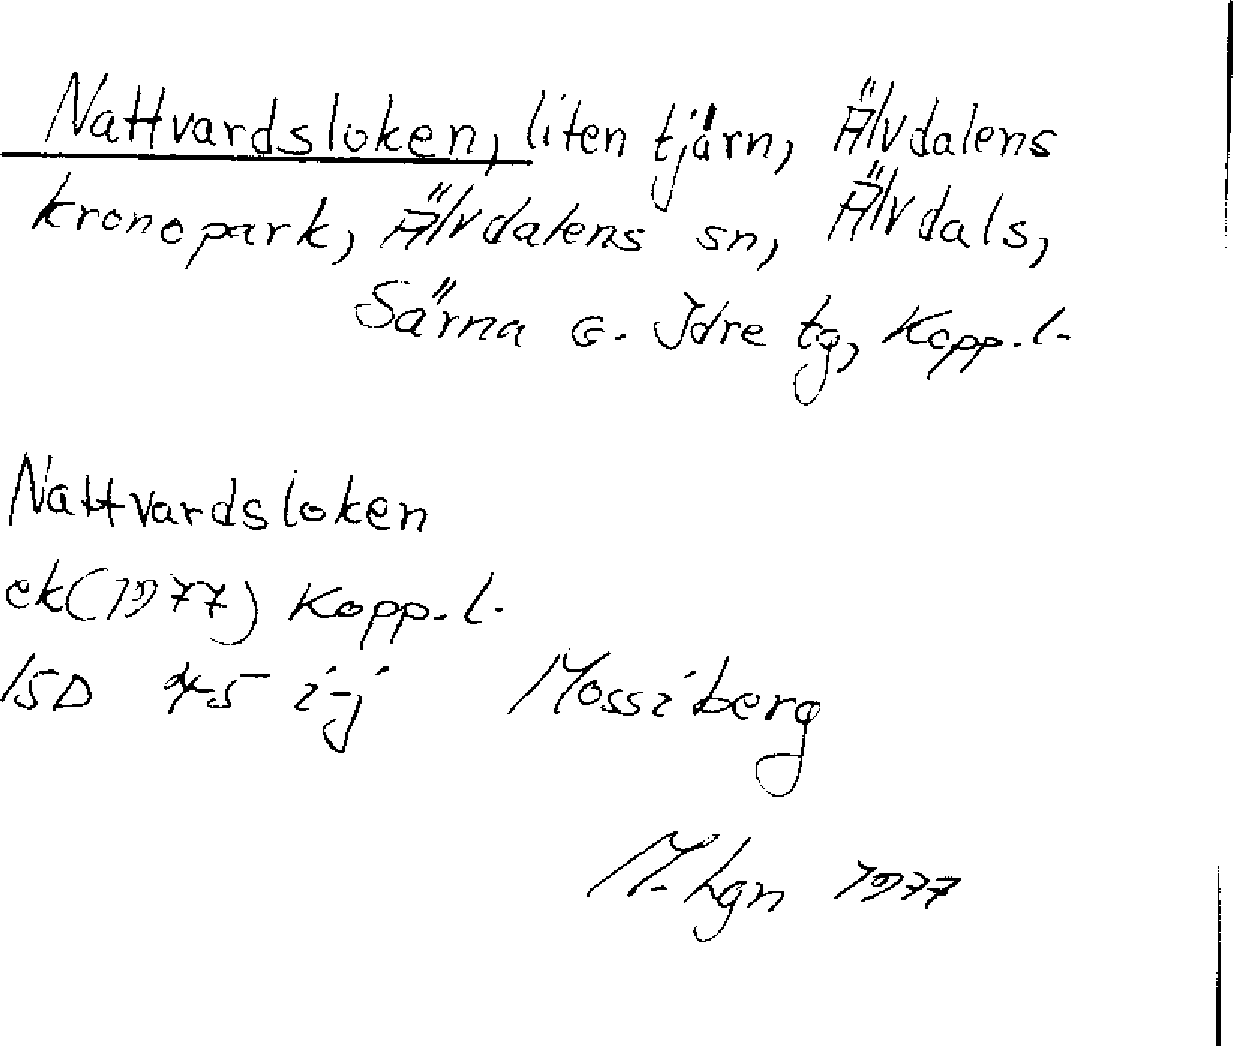 Nattvardsloken, liten tjärn, Älvdalens
kronopark, Älvdalens sn, Älvdals,
Särna o. Idre tg, Kopp. l.
Nattvardsloken
ek (1977) Kopp. l.
15D 4-5 i-j Mossiberg
M. Lgn 1977